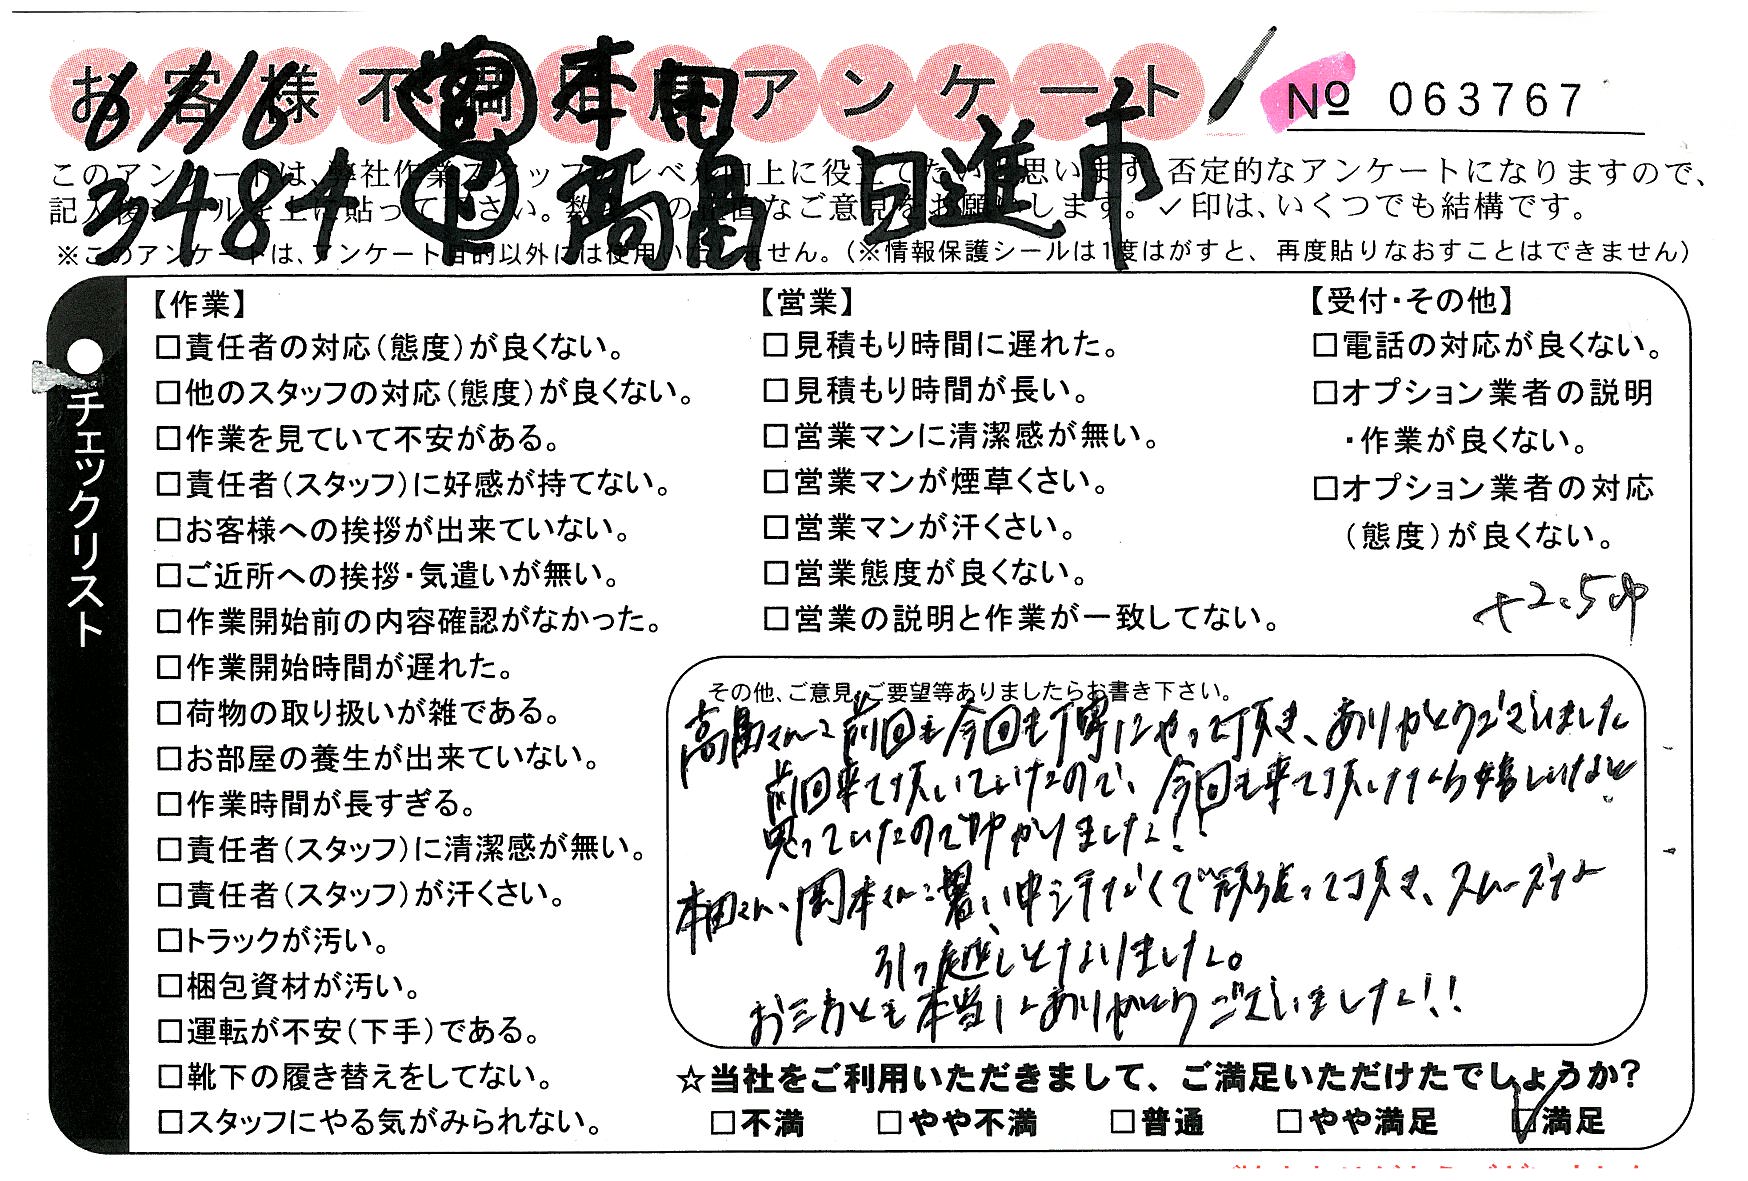 お客様不満足度アンケート
No 063767
6/16 営 本田
3484 作 高畠 日進市
このアンケートは、弊社作業スタッフのレベル向上に役立てたいと思います。否定的なアンケートになりますので、
記入後シールを上に貼って下さい。数多くの正直なご意見をお願いします。✓印は、いくつでも結構です。
※このアンケートは、アンケート目的以外には使用いたしません。(※情報保護シールは1度はがすと、再度貼りなおすことはできません)
●チェックリスト
【作業】
□責任者の対応(態度)が良くない。
□他のスタッフの対応(態度)が良くない。
□作業を見ていて不安がある。
□責任者(スタッフ)に好感が持てない。
□お客様への挨拶が出来ていない。
□ご近所への挨拶・気遣いが無い。
□作業開始前の内容確認がなかった。
□作業開始時間が遅れた。
□荷物の取り扱いが雑である。
□お部屋の養生が出来ていない。
□作業時間が長すぎる。
□責任者(スタッフ)に清潔感が無い。
□責任者(スタッフ)が汗くさい。
□トラックが汚い。
□梱包資材が汚い。
□運転が不安(下手)である。
□靴下の履き替えをしてない。
□スタッフにやる気がみられない。
【営業】
□見積もり時間に遅れた。
□見積もり時間が長い。
□営業マンに清潔感が無い。
□営業マンが煙草くさい。
□営業マンが汗くさい。
□営業態度が良くない。
□営業の説明と作業が一致してない。
【受付・その他】
□電話の対応が良くない。
□オプション業者の説明
・作業が良くない。
□オプション業者の対応
(態度)が良くない。
+2.5
その他、ご意見、ご要望等ありましたらお書き下さい。
高畠さん:前回も今回も丁寧にやって頂き、ありがとうございました
前回来て頂いていたので、今回も来て頂けたら嬉しいなと
思っていたので助かりました!!
本田さん、岡本さん:暑い中汗だくで頑張って頂き、スムーズな
引っ越しとなりました。
お三方とも本当にありがとうございました!!
☆当社をご利用いただきまして、ご満足いただけたでしょうか?
□不満 □やや不満 □普通 □やや満足 ☑満足